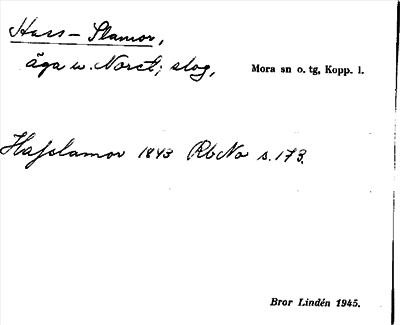 Hass-Slamor,
äga w. Noret; slog,
Mora sn o. tg, Kopp. l.
Hafslamor 1843 RbNo s. 173.
Bror Lindén 1945.